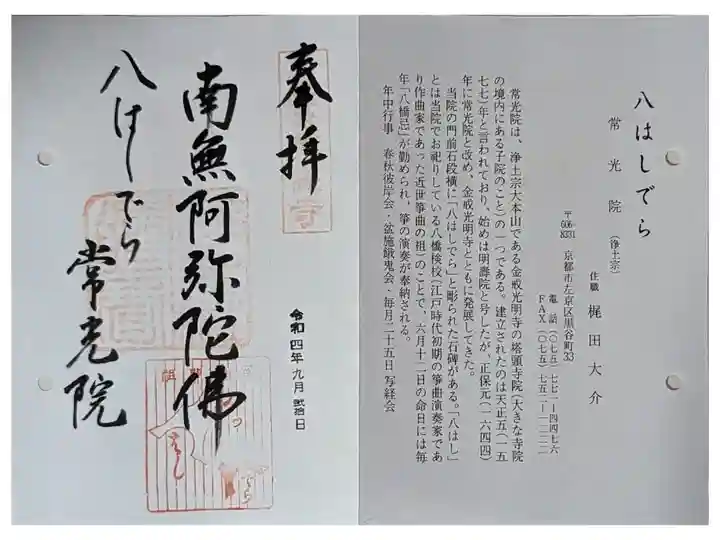 八はしでら
常光院(浄土宗)
住職 梶田大介
〒606-8331 京都市左京区黒谷町33
電話(〇七五)七七一―四四七六
FAX(〇七五)七五二―一二二二
常光院は、浄土宗大本山である金戒光明寺の塔頭寺院(大きな寺院
の境内にある子院のこと)の一つである。建立されたのは天正五(一五
七七)年と言われており、始めは明壽院と号したが、正保元(一六四四)
年に常光院と改め、金戒光明寺とともに発展してきた。
当院の門前石段横に「八はしでら」と彫られた石碑がある。「八はし」
とは当院でお祀りしている八橋検校(江戸時代初期の箏曲演奏家であ
り作曲家であった近世箏曲の祖)のことで、六月十二日の命日には毎
年「八橋忌」が勤められ、箏の演奏が奉納される。
年中行事 春秋彼岸会・盆施餓鬼会・毎月二十五日 写経会
奉拝
令和四年九月弐拾日
南無阿弥陀佛
八はしでら 常光院